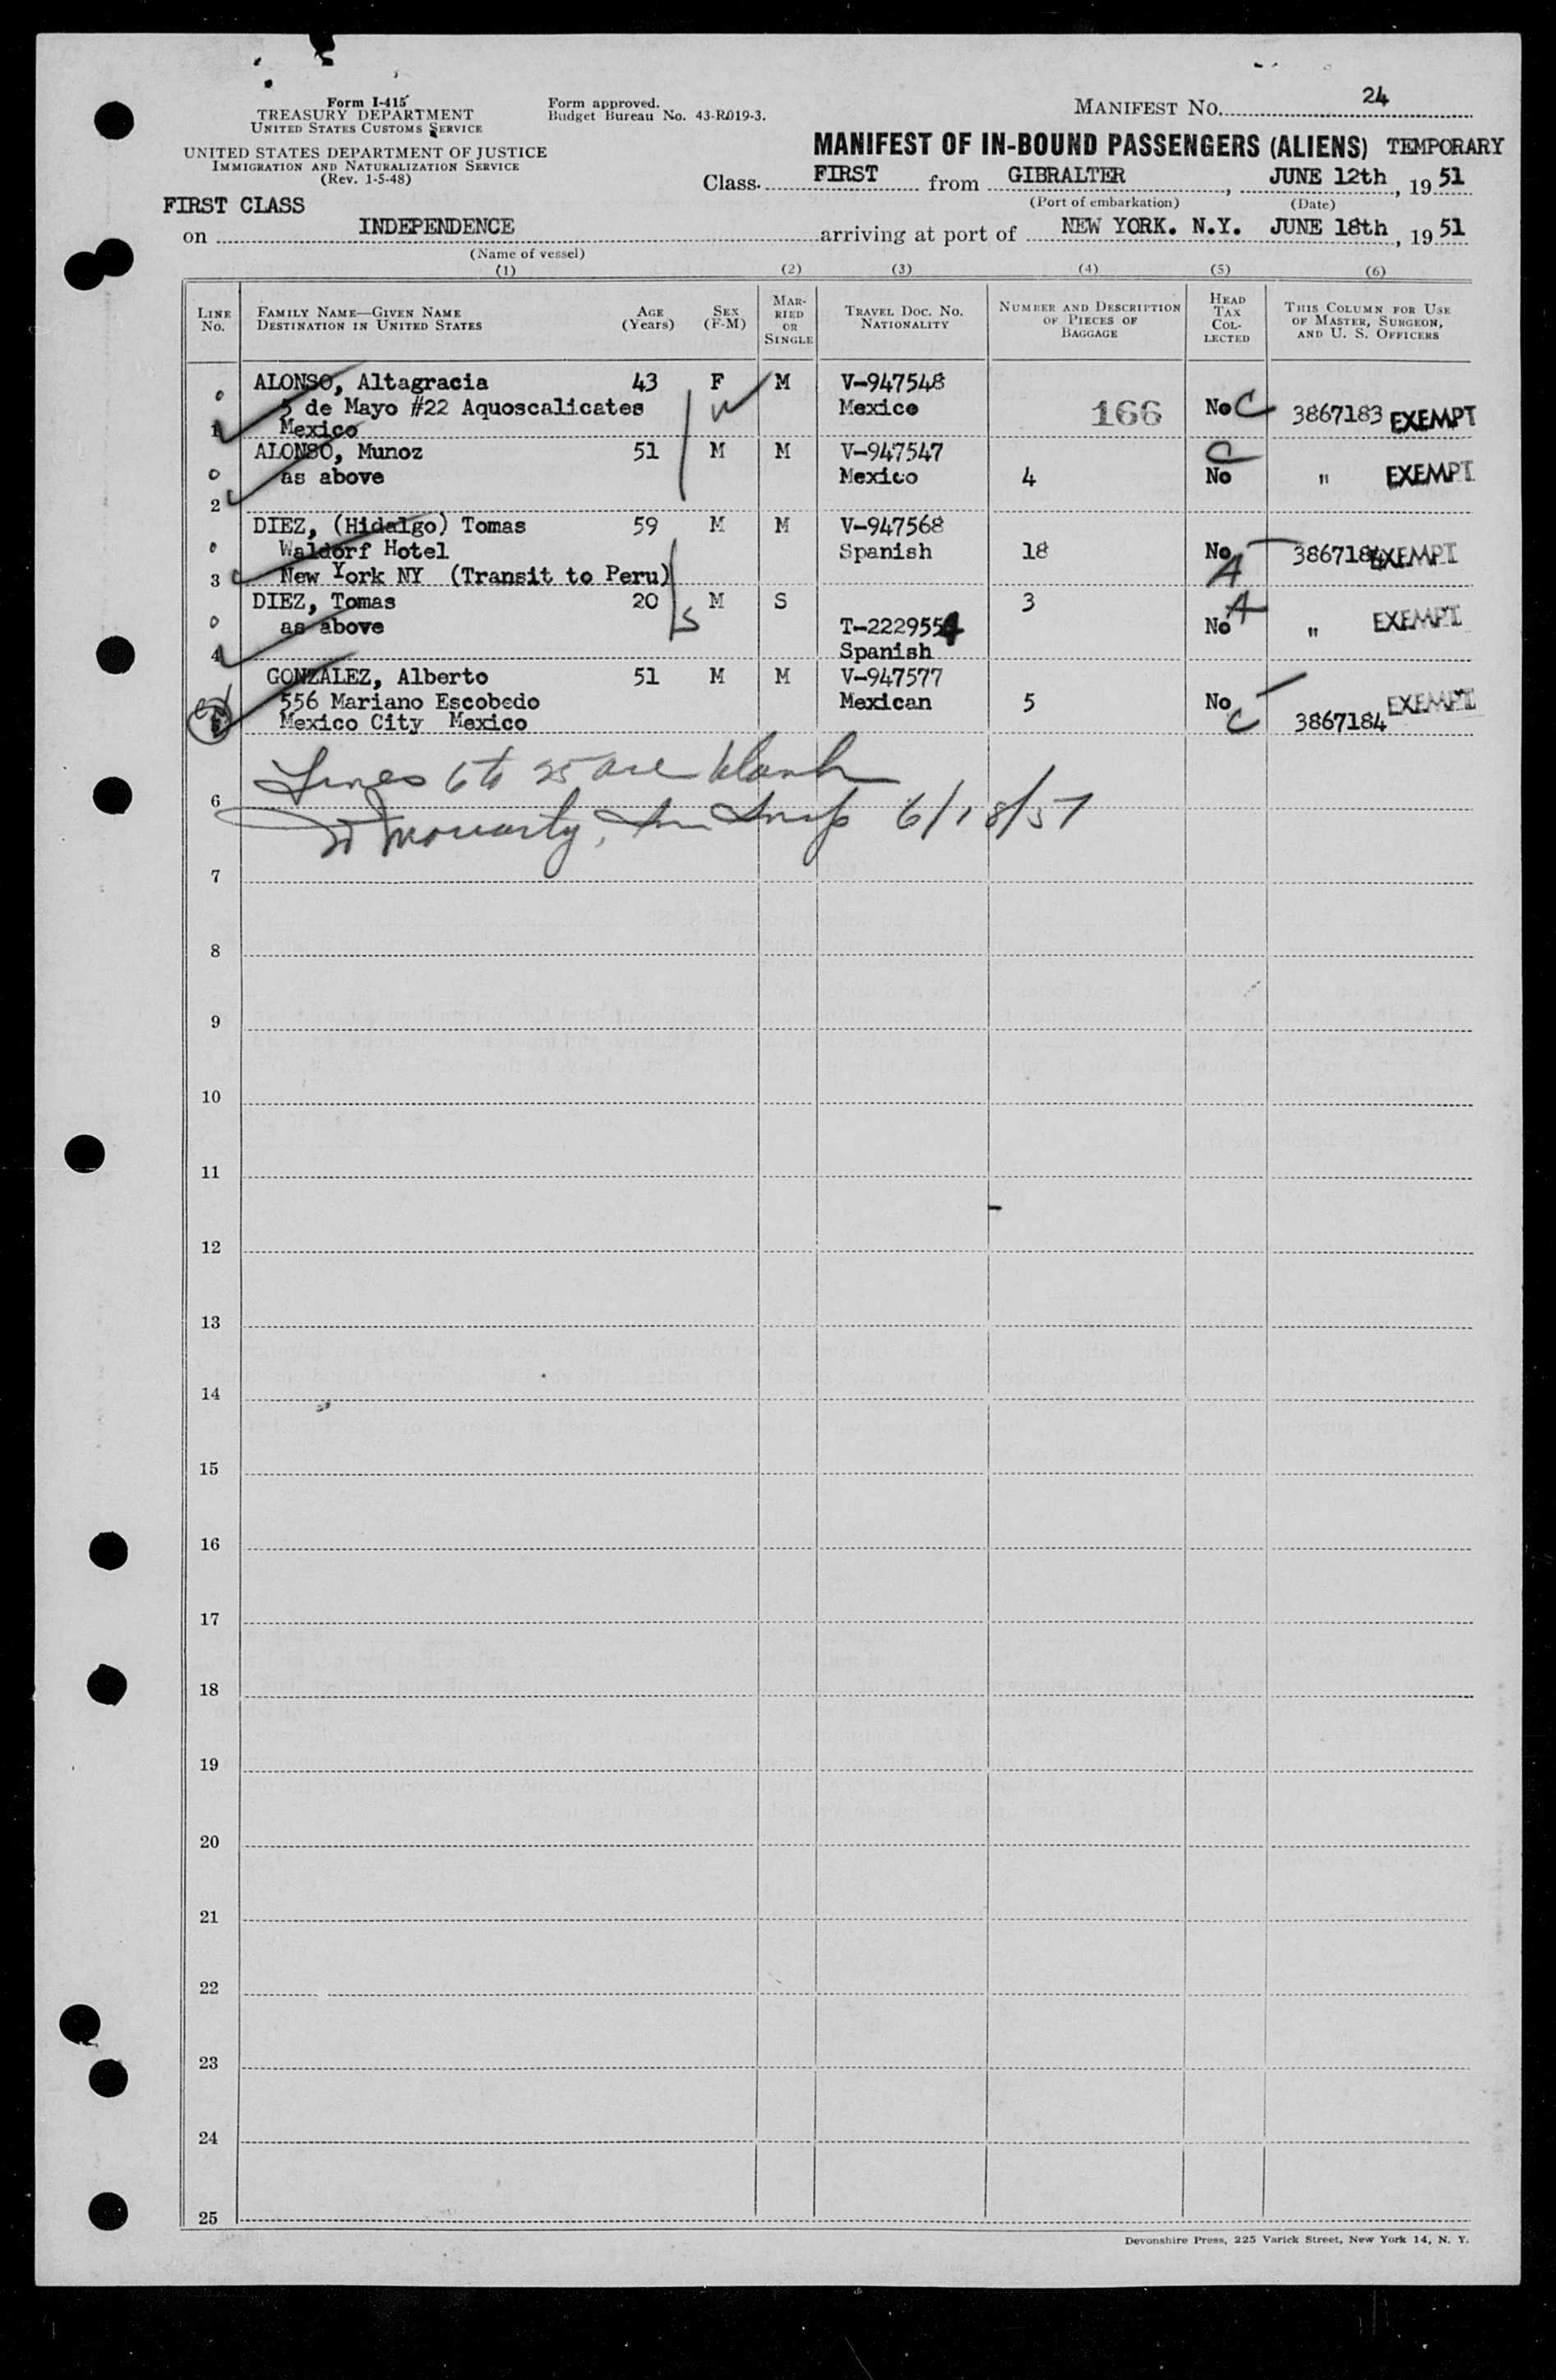 Form I-415
TREASURY DEPARTMENT
UNITED STATES CUSTOMS SERVICE
UNITED STATES DEPARTMENT OF JUSTICE
IMMIGRATION AND NATURALIZATION SERVICE
(Rev. 1-5-48)
Form approved.
Budget Bureau No. 43-R019-3.
MANIFEST NO. 24
MANIFEST OF IN-BOUND PASSENGERS (ALIENS) TEMPORARY
Class FIRST from GIBRALTER, JUNE 12th, 19 51
(Port of embarkation) (Date)
FIRST CLASS
on INDEPENDENCE arriving at port of NEW YORK. N.Y. JUNE 18th, 19 51
(Name of vessel)
(1) (2) (3) (4) (5) (6)
LINE NO.
FAMILY NAME—GIVEN NAME
DESTINATION IN UNITED STATES
AGE (Years)
SEX (F-M)
MAR-
RIED
OR
SINGLE
TRAVEL DOC. NO.
NATIONALITY
NUMBER AND DESCRIPTION
OF PIECES OF
BAGGAGE
HEAD
TAX
COL-
LECTED
THIS COLUMN FOR USE
OF MASTER, SURGEON,
AND U. S. OFFICERS
ALONSO, Altagracia 43 F M V-947548
5 de Mayo #22 Aquoscalicates Mexico 166 No C 3867183 EXEMPT
1 Mexico
ALONSO, Munoz 51 M M V-947547 C
as above Mexico 4 No " EXEMPT
2
DIEZ, (Hidalgo) Tomas 59 M M V-947568
Waldorf Hotel Spanish 18 No 3867184 EXEMPT
3 New York NY (Transit to Peru) A
DIEZ, Tomas 20 M S 3 A
as above T-2229554 No " EXEMPT
4 Spanish
GONZALEZ, Alberto 51 M M V-947577
556 Mariano Escobedo Mexican 5 No EXEMPT
5 Mexico City Mexico C 3867184
Lines 6 to 25 are blank
6
Moriarty, Im Insp 6/18/51
7
8
9
10
11
12
13
14
15
16
17
18
19
20
21
22
23
24
25
Devonshire Press, 225 Varick Street, New York 14, N. Y.